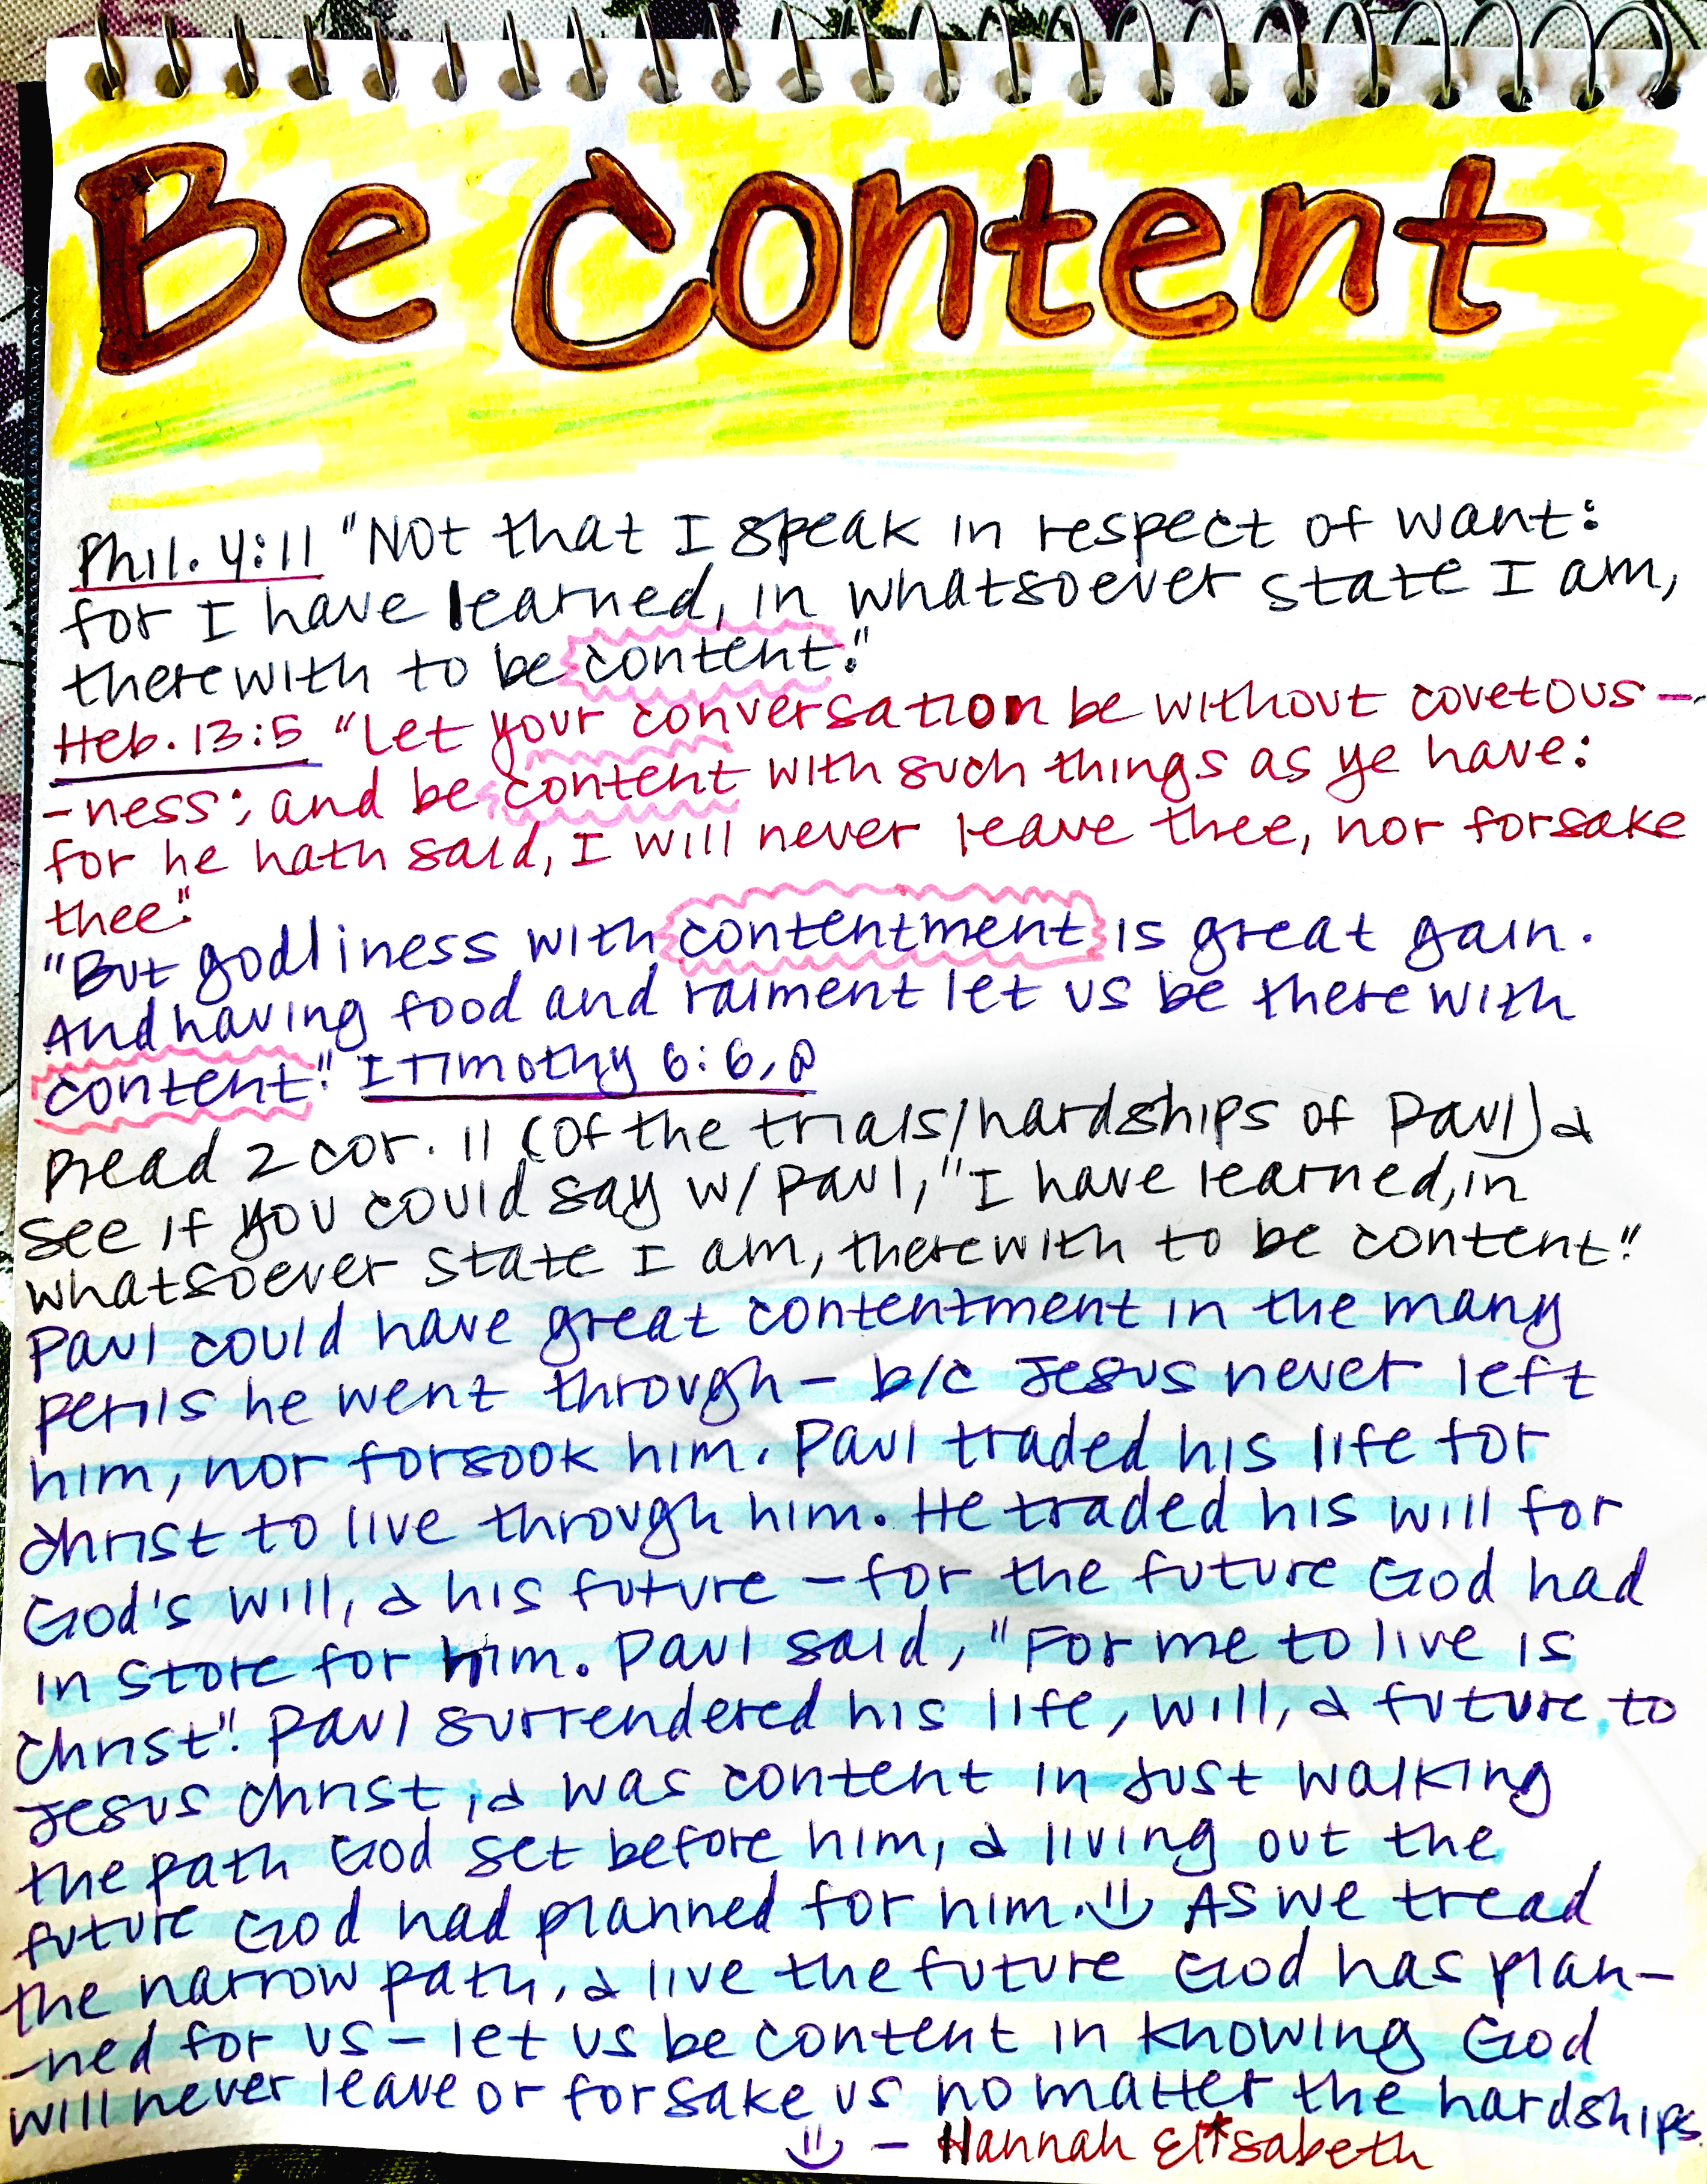 Be Content
Phil. 4:11 "Not that I speak in respect of want:
for I have learned, in whatsoever state I am,
therewith to be content."
Heb. 13:5 "Let your conversation be without covetous-
-ness; and be content with such things as ye have:
for he hath said, I will never leave thee, nor forsake
thee."
"But godliness with contentment is great gain.
And having food and raiment let us be therewith
content." I Timothy 6:6,8
Read 2 Cor. 11 (Of the trials/hardships of Paul) &
see if you could say w/ Paul, "I have learned, in
whatsoever state I am, therewith to be content."
Paul could have great contentment in the many
perils he went through - b/c Jesus never left
him, nor forsook him. Paul traded his life for
Christ to live through him. He traded his will for
God's will, & his future - for the future God had
in store for him. Paul said, "For me to live is
Christ". Paul surrendered his life, will, & future to
Jesus Christ, & was content in just walking
the path God set before him, & living out the
future God had planned for him. As we tread
the narrow path, & live the future God has plan-
-ned for us - let us be content in knowing God
will never leave or forsake us no matter the hardships.
- Hannah Elisabeth